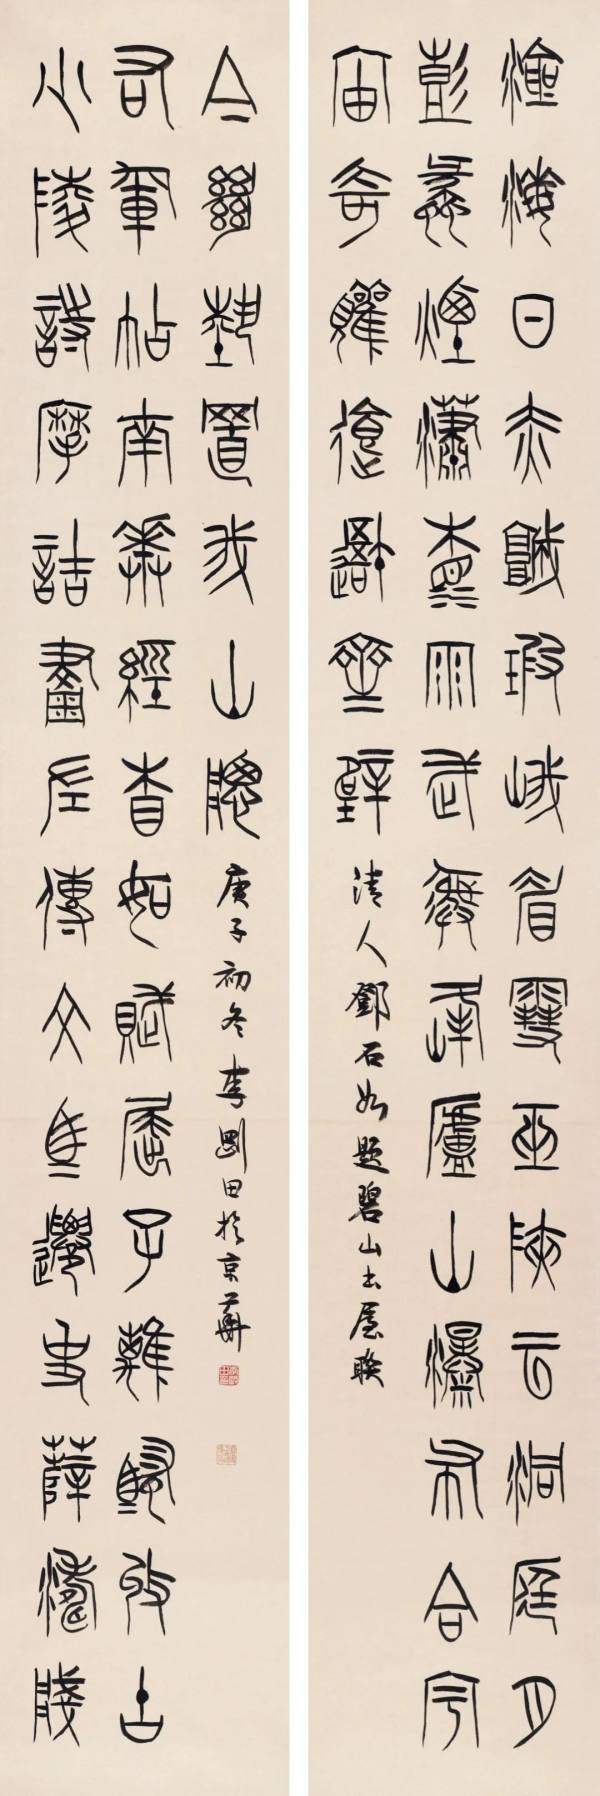 滄海日赤城霞峨眉雪巫峽云洞庭月
彭蠡煙瀟湘雨武夷峰廬山瀑布合宇
宙奇觀繪吾齋壁
清人鄧石如題碧山書屋聯
少陵詩摩詰畫左傳文馬遷史薛濤牋
右軍帖南華經相如賦屈子離騷收古
今絕藝置我山牕
庚子初冬李剛田於京華